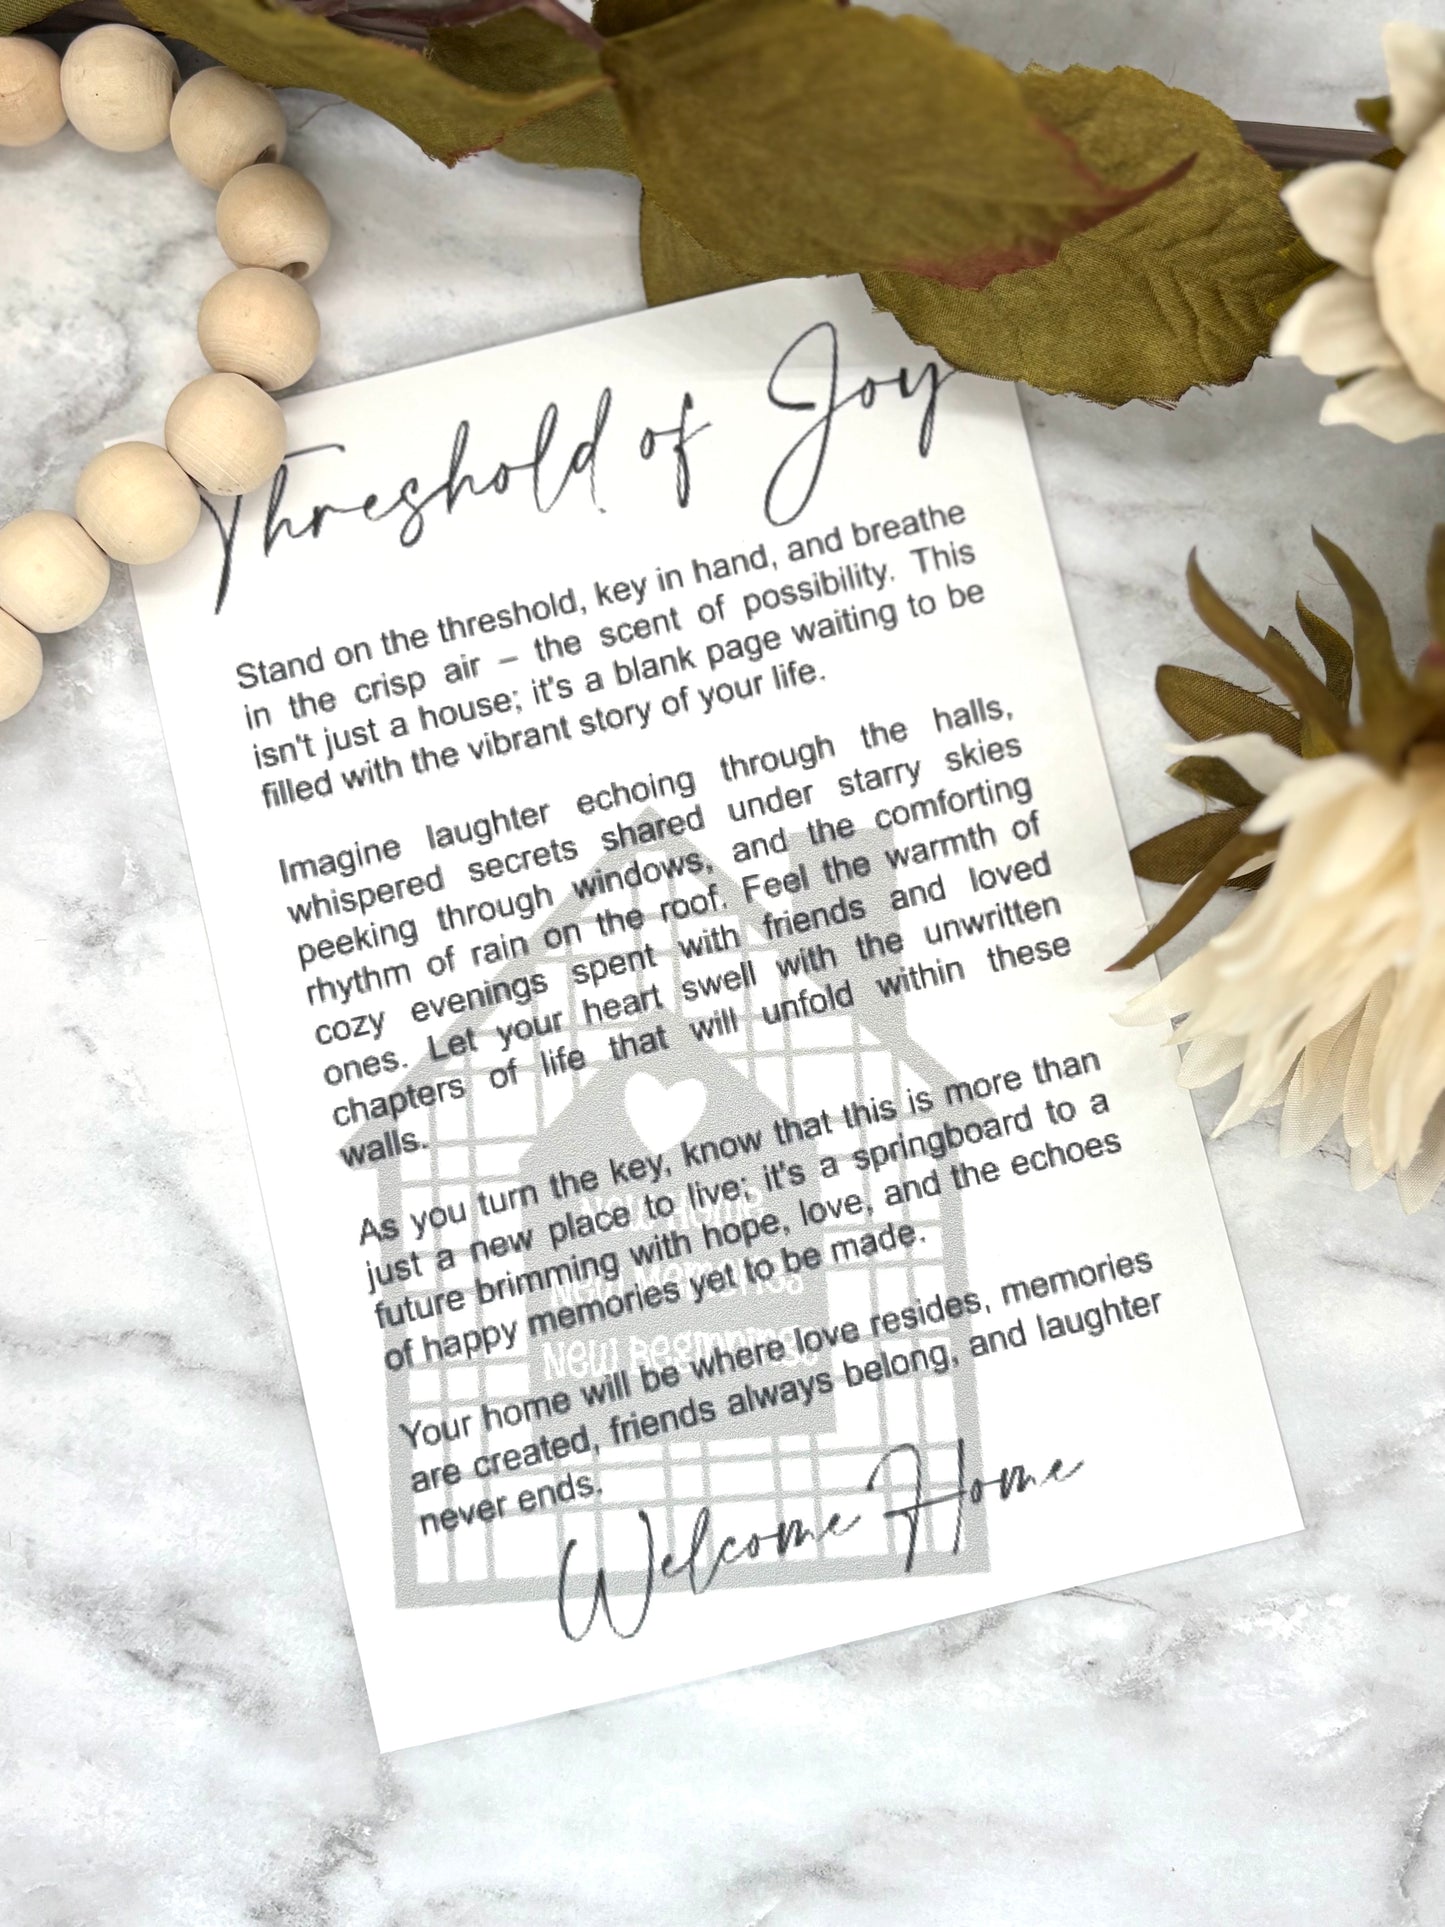 Threshold of Joy
Stand on the threshold, key in hand, and breathe
in the crisp air – the scent of possibility. This
isn't just a house; it's a blank page waiting to be
filled with the vibrant story of your life.
Imagine laughter echoing through the halls,
whispered secrets shared under starry skies
peeking through windows, and the comforting
rhythm of rain on the roof. Feel the warmth of
cozy evenings spent with friends and loved
ones. Let your heart swell with the unwritten
chapters of life that will unfold within these
walls.
As you turn the key, know that this is more than
just a new place to live; it's a springboard to a
future brimming with hope, love, and the echoes
of happy memories yet to be made.
Your home will be where love resides, memories
are created, friends always belong, and laughter
never ends.
Welcome Home
New Home
New Memories
New Beginnings